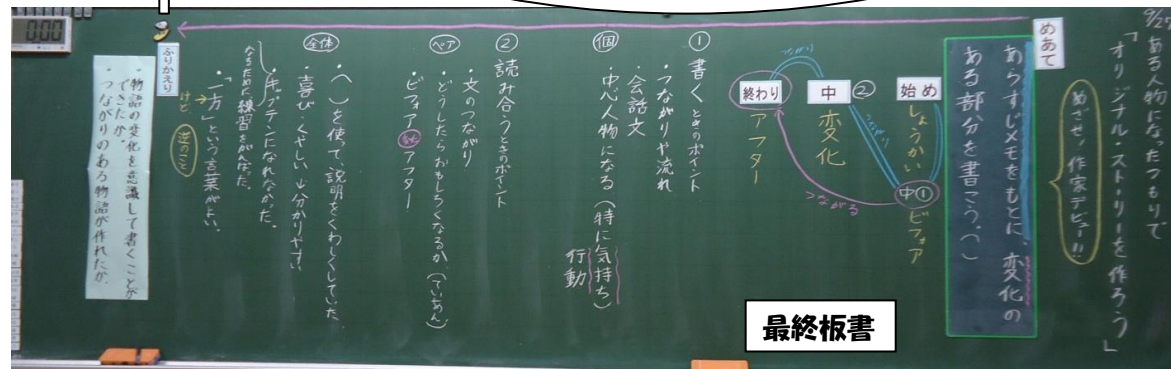 9/27
ある人物になったつもりで
「オリジナル・ストーリーを作ろう」
めざせ!作家デビュー!!
めあて
あらすじメモをもとに、変化の
ある部分を書こう。( )
始め
しょうかい
中①
ビフォア
中
②
変化
終わり
アフター
つながり
つながり
つながる
① 書くときのポイント
・つながりや流れ
・会話文
個
・中心人物になる(特に気持ち)
行動
② 読み合うときのポイント
・文のつながり
ペア
・どうしたらおもしろくなるか(ていあん)
ビフォア
アフター
全体
・( )を使って、説明をくわしくしていた。
・喜び・くやしい→分かりやすい
・キャプテンになれなかった。
なるために練習をがんばった。
・「一方」という言葉がよい。
→けど
逆のこと
ふりかえり
・物語の変化を意識して書くことが
できたか。
・つながりのある物語が作れたか。
0:00
最終板書